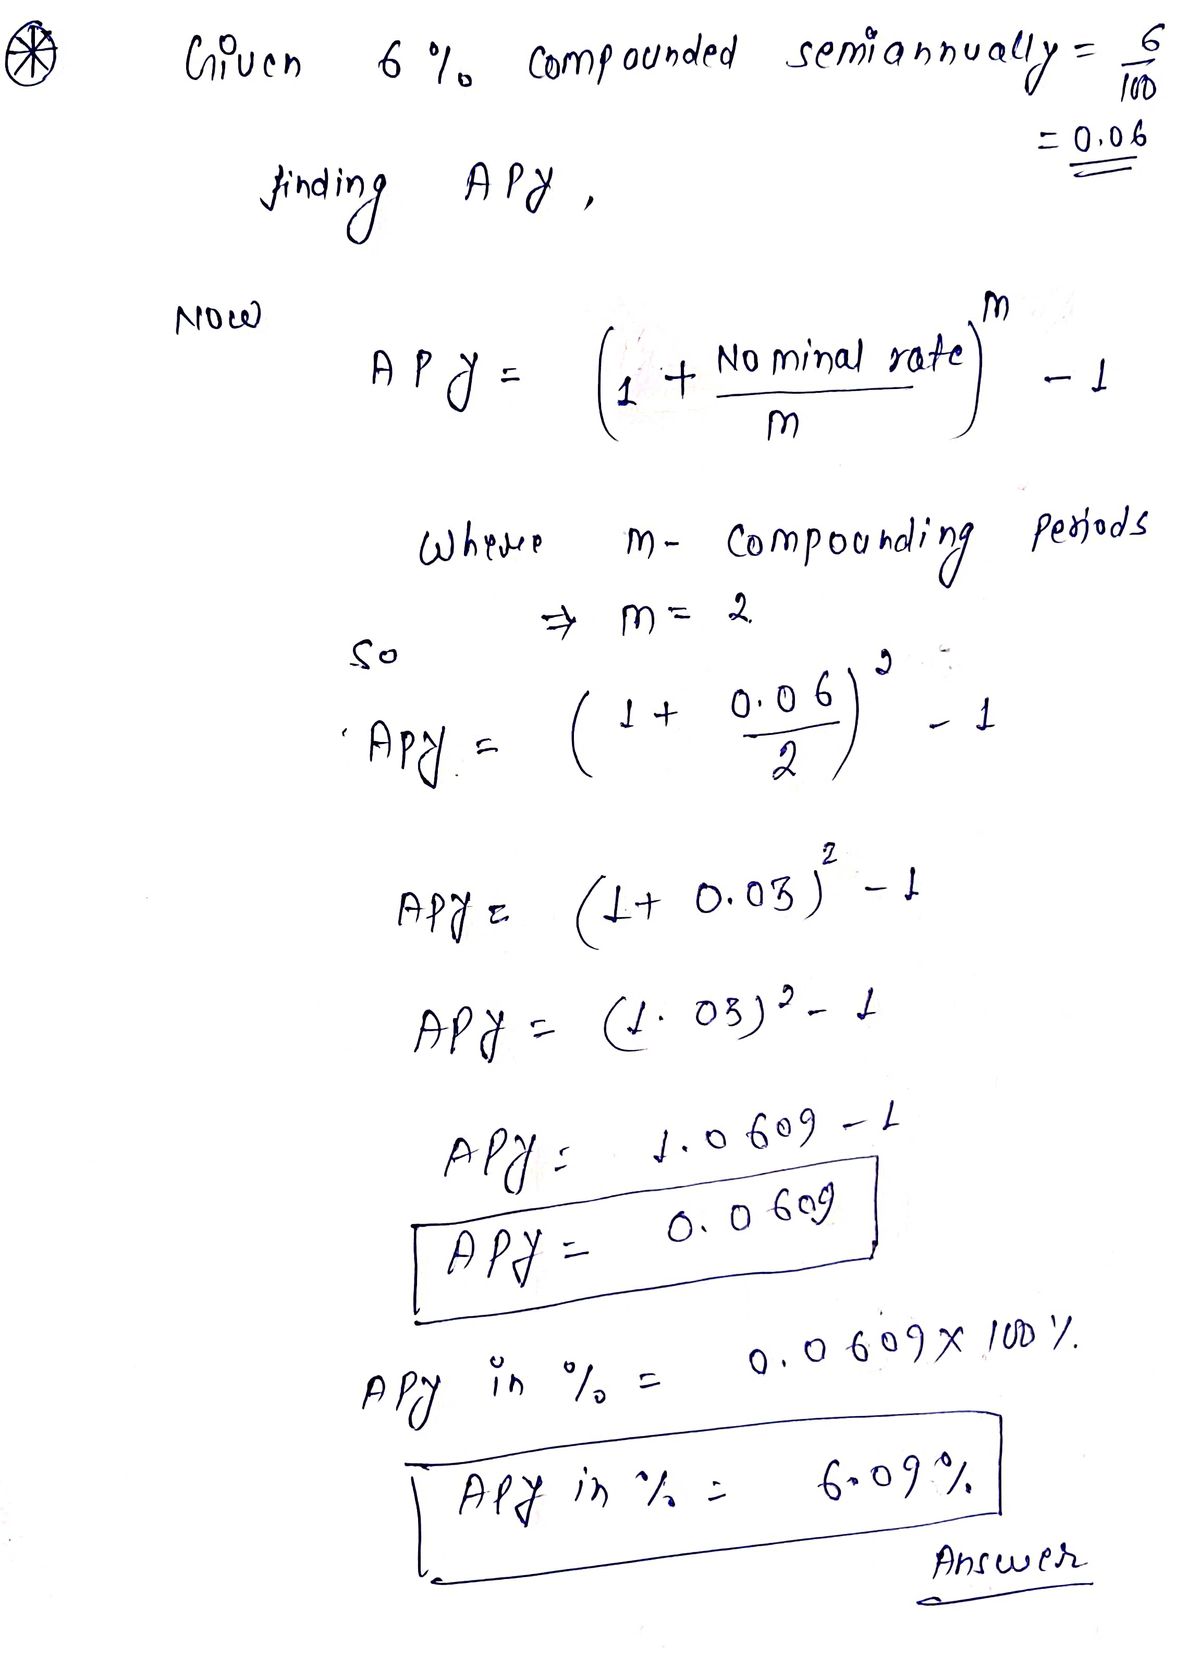 Given 6% compounded semiannually = 6/100
= 0.06
finding APY,
Now
APY = (1 + Nominal rate/m)^m - 1
Where m - compounding periods
⇒ m = 2
So
APY = (1 + 0.06/2)^2 - 1
APY = (1 + 0.03)^2 - 1
APY = (1.03)^2 - 1
APY = 1.0609 - 1
APY = 0.0609
APY in % = 0.0609 × 100%
APY in % = 6.09%
Answer